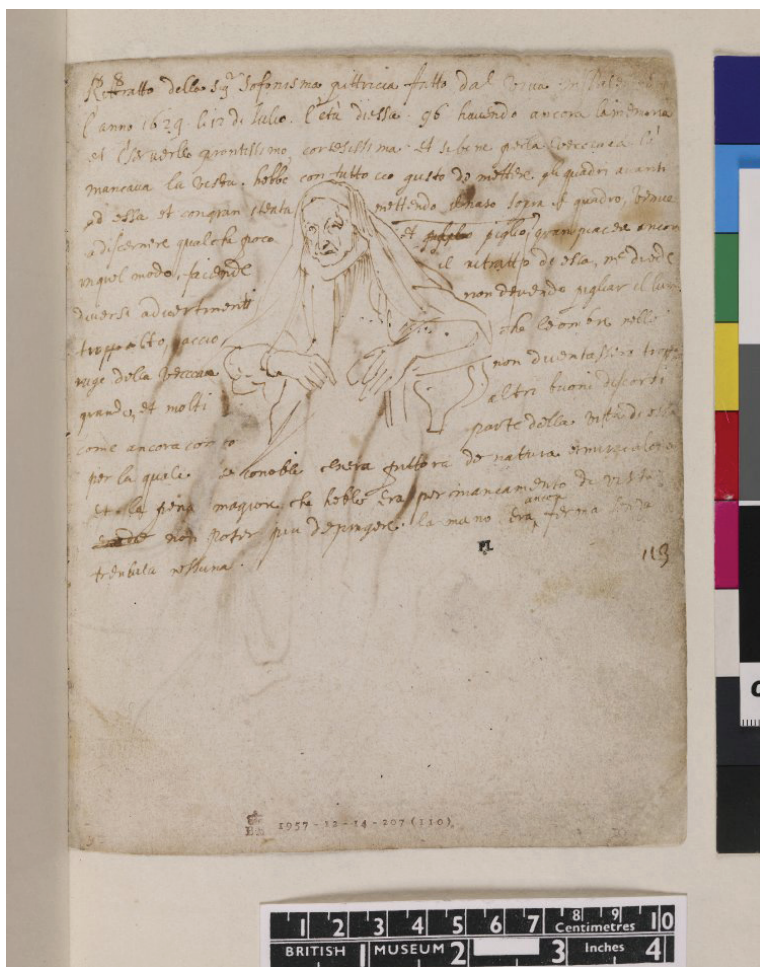 Rittratto della Sigra Sofonisma pittricia fatto dal vivo in Palermo
l'anno 1624 li 12 di Julio. l'età di essa. 96 havendo ancora la memoria
et il serverllo prontissimo, cortesissima. et sebene per la vecciaia le
mancava la vista. hebbe con tutto cio gusto de mettere gli quadri avanti
ad essa et con gran stenta mettendo il naso sopra il quadro, venne
a discernere qualche poco et piglio gran piacere ancora
in quel modo. faciende il ritratto de essa, me diede
diversi advertimenti non devendo pigliar il lume
troppo alto, accio che le ombre nelle
ruge della vecciaia non diventassero troppo
grande, et molti altri buoni discorsi
come ancora conto parte della vita di essa
per la quale se conobbe chera pittora de natura et miracolosa
et la pena magiore che hebbe era per mancamento di vista
non poter piu depingere. la mano era ancora ferma senza
tremula nessuna.
PL
113
BM 1957-12-14-207 (110)
1 2 3 4 5 6 7 8 9 10
Centimetres
BRITISH 1 MUSEUM 2 3 Inches 4